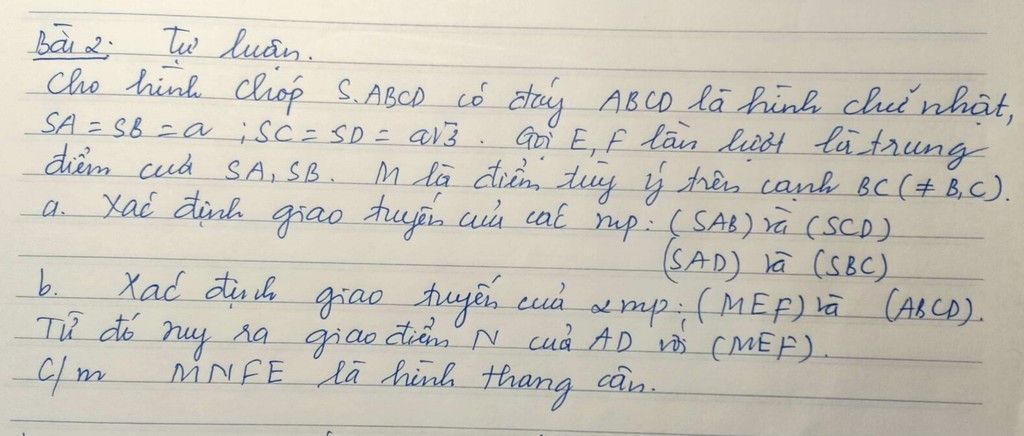 Bài 2: Tự luận.
Cho hình chóp S.ABCD có đáy ABCD là hình chữ nhật,
SA = SB = a ; SC = SD = a√3. Gọi E, F lần lượt là trung
điểm của SA, SB. M là điểm tùy ý trên cạnh BC (≠ B, C).
a. Xác định giao tuyến của các mp: (SAB) và (SCD)
(SAD) và (SBC)
b. Xác định giao tuyến của 2 mp: (MEF) và (ABCD).
Từ đó suy ra giao điểm N của AD với (MEF).
C/m MNFE là hình thang cân.